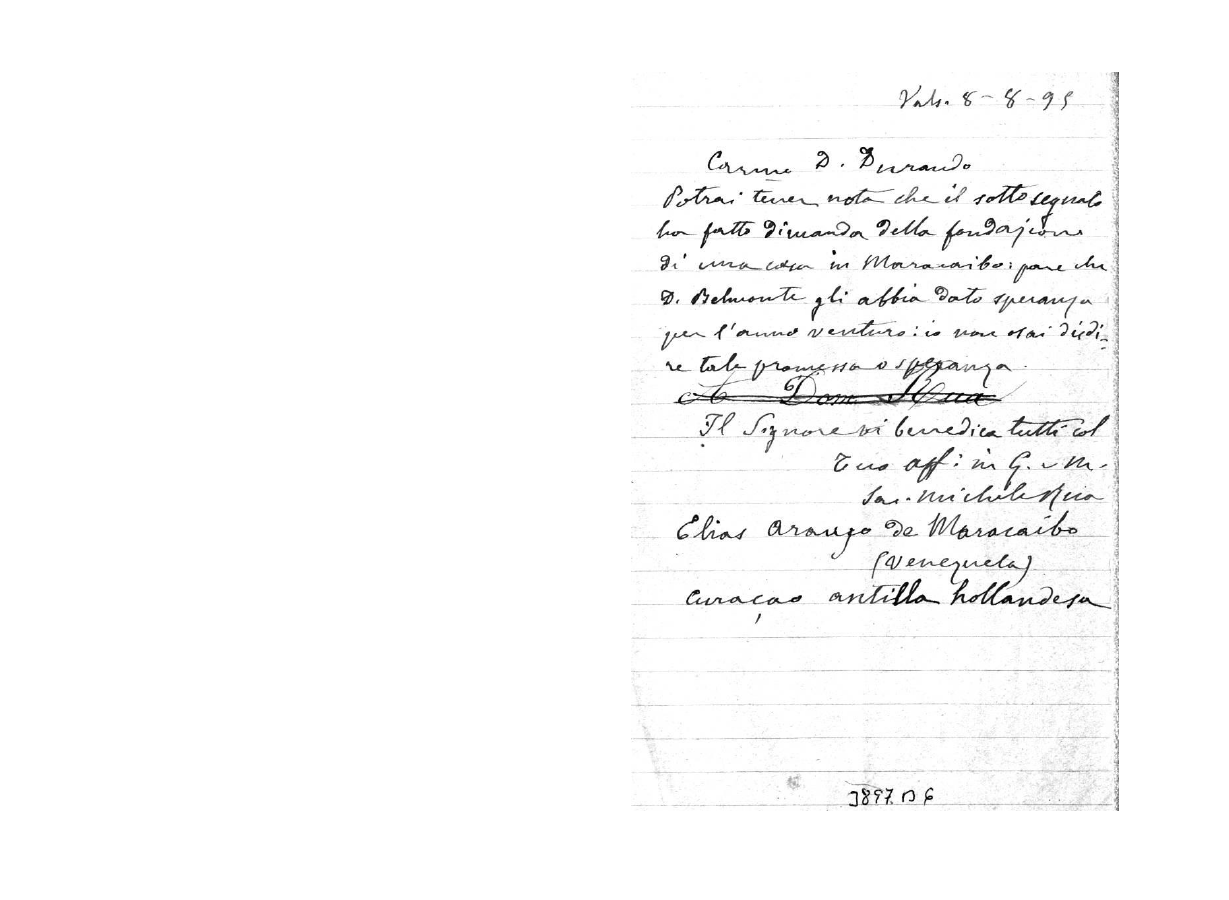 Vals. 8-8-95
Car.mo D. Durando
Potrai tener nota che il sotto segnato
ha fatto dimanda della fondazione
di una casa in Maracaibo: pare che
D. Belmonte gli abbia dato speranza
per l'anno venturo: io non osai disdi-
re tale promessa o speranza.
A Dom Rua
Il Signore vi benedica tutti col
tuo aff: in G. e M.
Sac. Michele Rua
Elias Araujo de Maracaibo
(Venezuela)
Curaçao antilla hollandesa
3897 B 6